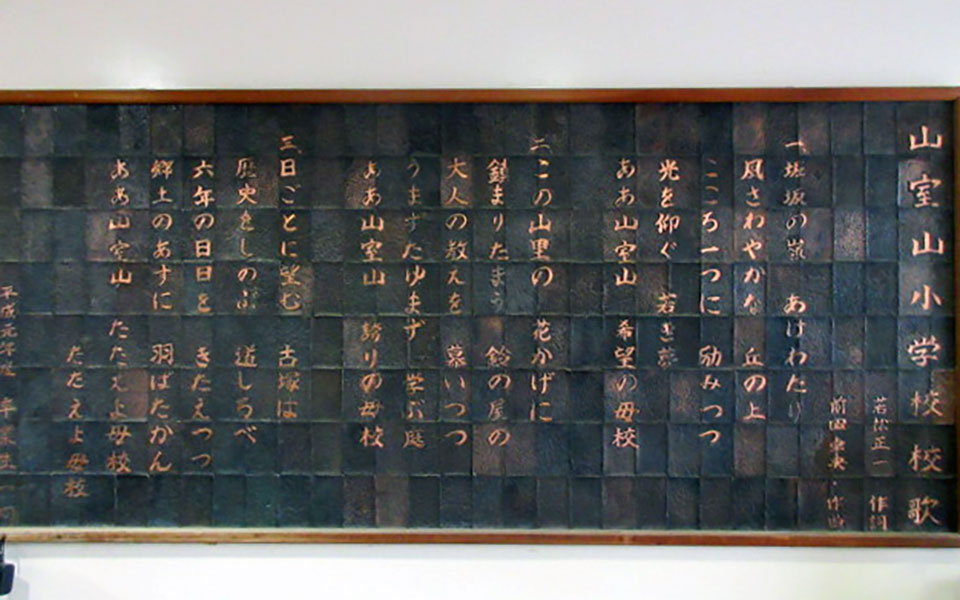 山室山小学校校歌
若松正一 作詞
前田 作曲
一、堀坂の嶺 あけわたり
風さわやかな 丘の上
こころ一つに 励みつつ
光を仰ぐ 若き夢
ああ山室山 希望の母校
二、この山里の 花かげに
鎮まりたまう 鈴の屋の
大人の教えを 慕いつつ
うまずたゆまず 学ぶ庭
ああ山室山 誇りの母校
三、日ごとに望む 古塚は
歴史をしのぶ 道しるべ
六年の日日を きたえつつ
郷土のあすに 羽ばたかん
ああ山室山 たたえよ母校
たたえよ母校
平成元年度 卒業生一同